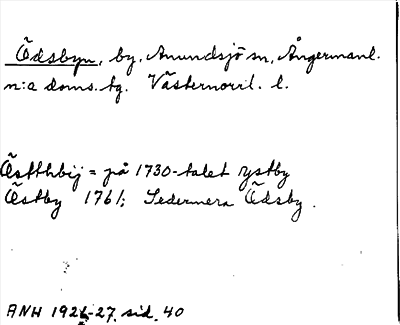 Ödsbyn, by, Anundsjö sn, Ångermanl.
n:a doms. tg. Västernorrl. l.
Östthbij = på 1730-talet ystby
Östby 1761; Sedermera Ödsby.
ANH 1926-27, sid. 40